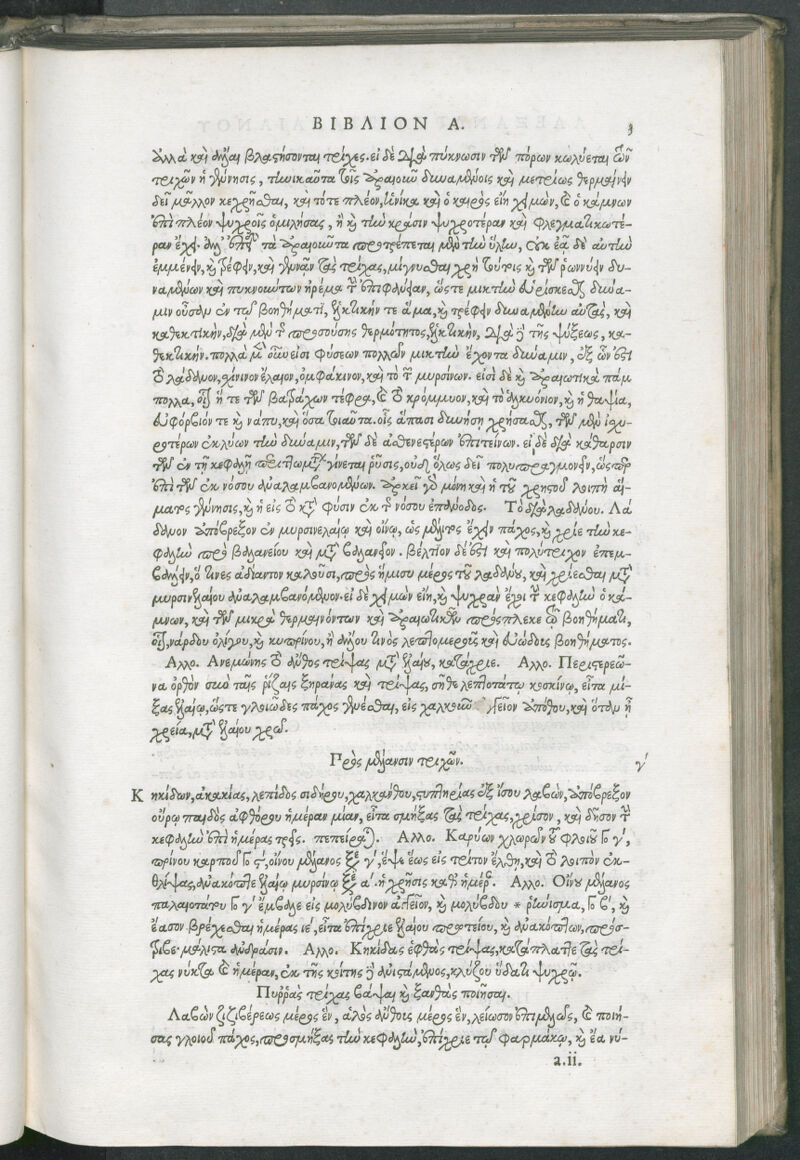 ΒΙΒΛΙΟΝ Α. 3
ἀλλὰ καὶ ἄλλαι βλαστήσονται τρίχες. εἰ δὲ διὰ πύκνωσιν τῶν πόρων κωλύεται τῶν
τριχῶν ἡ γέννησις, τηνικαῦτα τοῖς ἀραιοῦν δυναμένοις καὶ μετρίως θερμαίνειν
δεῖ μᾶλλον κεχρῆσθαι, καὶ τότε πλέον, ἡνίκα καὶ ὁ καιρὸς εἴη χειμὼν, καὶ ὁ κάμνων
ἐπὶ πλέον ψυχροῖς ὁμιλήσας, ἢ καὶ τὴν κρᾶσιν ψυχροτέραν καὶ φλεγματικωτέ-
ραν ἔχει. ἀλλ' ἐπεὶ τὰ ἀραιοῦντα προτρέπεται μὲν τὴν ὕλην, οὐκ ἐᾷ δὲ αὐτὴν
ἐμμένειν, καὶ τρέφειν, καὶ γεννᾶν τὰς τρίχας, μίγνυσθαι χρὴ τούτοις καὶ τῶν ῥωννύειν δυ-
ναμένων καὶ πυκνούντων ἠρέμα τὴν ἐπιφάνειαν, ὥστε μικτὴν εὑρίσκεσθαι δύνα-
μιν οὖσαν ἐν τῷ βοηθήματι, ἑλκτικήν τε ἅμα, καὶ τρέφειν δυναμένην αὐτὰς, καὶ
καθεκτικήν, διὰ μὲν τῆς προσούσης θερμότητος, ἑλκτικήν, διὰ δὲ τῆς ψύξεως, κα-
θεκτικήν. πολλὰ μὲν οὖν εἰσι φύσεων πολλῶν μικτὴν ἔχοντα δύναμιν, ἐξ ὧν ἐστι
τὸ λάδανον, σχίνινον ἔλαιον, ὀμφάκινον, καὶ τὸ τῶν μυρσίνων. εἰσὶ δὲ καὶ ἀραιωτικὰ πάμ
πολλα, οἷον ἥ τε τῶν βατράχων τέφρα, καὶ τὸ κρόμμυον, καὶ τὸ ἀλκυόνιον, καὶ ἡ θαψία,
εὐφόρβιόν τε καὶ νάπυ, καὶ ὅσα τοιαῦτα. οἷς ἅπασι δυνήσῃ χρήσασθαι, τῶν μὲν ἰσχυ-
ροτέρων ἐκλύων τὴν δύναμιν, τῶν δὲ ἀσθενεστέρων ἐπιτείνων. εἰ δὲ διὰ κάθαρσιν
τῶν ἐν τῇ κεφαλῇ περιττωμάτων γίνεται ῥύσις, οὐδὲ ὅλως δεῖ πολυπραγμονεῖν, ὥσπερ
ἐπὶ τῶν ἐκ νόσου ἀναλαμβανομένων. ἀρκεῖ γὰρ μόνη καὶ ἡ τοῦ χρηστοῦ λοιπὴ αἵ-
ματος γέννησις, καὶ ἡ εἰς τὸ κατὰ φύσιν ἐκ τῆς νόσου ἐπάνοδος. Τὸ διὰ λαδάνου. Λά
δανον ἀπόβρεξον ἐν μυρσινελαίῳ καὶ οἴνῳ, ὡς μέλιτος ἔχειν πάχος, καὶ χρῖε τὴν κε-
φαλὴν πρὸ βαλανείου καὶ μετὰ βαλανεῖον. βέλτιον δέ ἐστι καὶ πολύτριχον ἐπεμ-
βαλεῖν, ὅ τινες ἀδίαντον καλοῦσι, πρὸς ἥμισυ μέρος τοῦ λαδάνου, καὶ χρίεσθαι μετὰ
μυρσινελαίου ἀναλαμβανόμενον. εἰ δὲ χειμὼν εἴη, καὶ ψυχρὰν ἔχοι τὴν κεφαλὴν ὁ κά-
μνων, καὶ τῶν μικρὰ θερμαινόντων καὶ ἀραιωτικῶν πρόσπλεκε τῷ βοηθήματι,
οἷον, νάρδου ὀλίγου, καὶ κυπρίνου, ἢ ἄλλου τινὸς λεπτομεροῦς καὶ εὐώδους βοηθήματος.
Αλλο. Ανεμώνης τὸ ἄνθος τρίψας μετὰ ἐλαίου, κατάχριε. Αλλο. Περιστερεῶ-
να ὀρθὸν σὺν ταῖς ῥίζαις ξηράνας καὶ τρίψας, σῆθε λεπτοτάτῳ κοσκίνῳ, εἶτα μί-
ξας ἐλαίῳ, ὥστε γλοιῶδες πάχος γενέσθαι, εἰς χαλκοῦν ἀγγεῖον ἀπόθου, καὶ ὅταν ᾖ
χρεία, μετὰ ἐλαίου χρῶ.
Πρὸς μέλανσιν τριχῶν. γ΄
Κηκίδων, ἀκακίας, λεπίδος σιδήρου, χαλκάνθου, στυπτηρίας ἐξ ἴσου λαβὼν, ἀπόβρεξον
οὔρῳ παιδὸς ἀφθόρου ἡμέραν μίαν, εἶτα σμήξας τὰς τρίχας, χρῖσον, καὶ δῆσον τὴν
κεφαλὴν ἐπὶ ἡμέρας τρεῖς. πεπείραται. Αλλο. Καρύων χλωρῶν τοῦ φλοιοῦ γο γ΄,
πρίνου καρποῦ γο ϛ΄, οἴνου μέλανος ξε γ΄, ἕψε ἕως εἰς τρίτον ἔλθῃ, καὶ τὸ λοιπὸν ἐκ-
θλίψας, ἀνακόπτε ἐλαίῳ μυρσίνῳ ξε α΄. ἡ χρῆσις καθ' ἡμέραν. Αλλο. Οἴνου μέλανος
παλαιοτάτου γο γ΄ ἔμβαλε εἰς μολύβδινον ἀγγεῖον, καὶ μολύβδου * ῥινίσματα, γο β΄, καὶ
ἔασον βρέχεσθαι ἡμέρας ιε΄, εἶτα ἐπίχριε ἐλαίου πρωτείου, καὶ ἀνακόπτων, πρόσ-
τριβε. μάλιστα ἀνδράσιν. Αλλο. Κηκίδας ἑφθὰς τρίψας, κατάπλαττε τὰς τρί-
χας νύκτα καὶ ἡμέραν, ἐκ τῆς κοίτης δὲ ἀνιστάμενος, κλύζου ὕδατι ψυχρῷ.
Πυῤῥὰς τρίχας βάψαι καὶ ξανθὰς ποιῆσαι.
Λαβὼν ζιζιβέρεως μέρος ἓν, ἁλὸς ἄνθους μέρος ἓν, λείωσον ἐπιμελῶς, καὶ ποιή-
σας γλοιοῦ πάχος, προσμήξας τὴν κεφαλὴν, ἐπίχριε τῷ φαρμάκῳ, καὶ ἔα νύ-
a.ii.